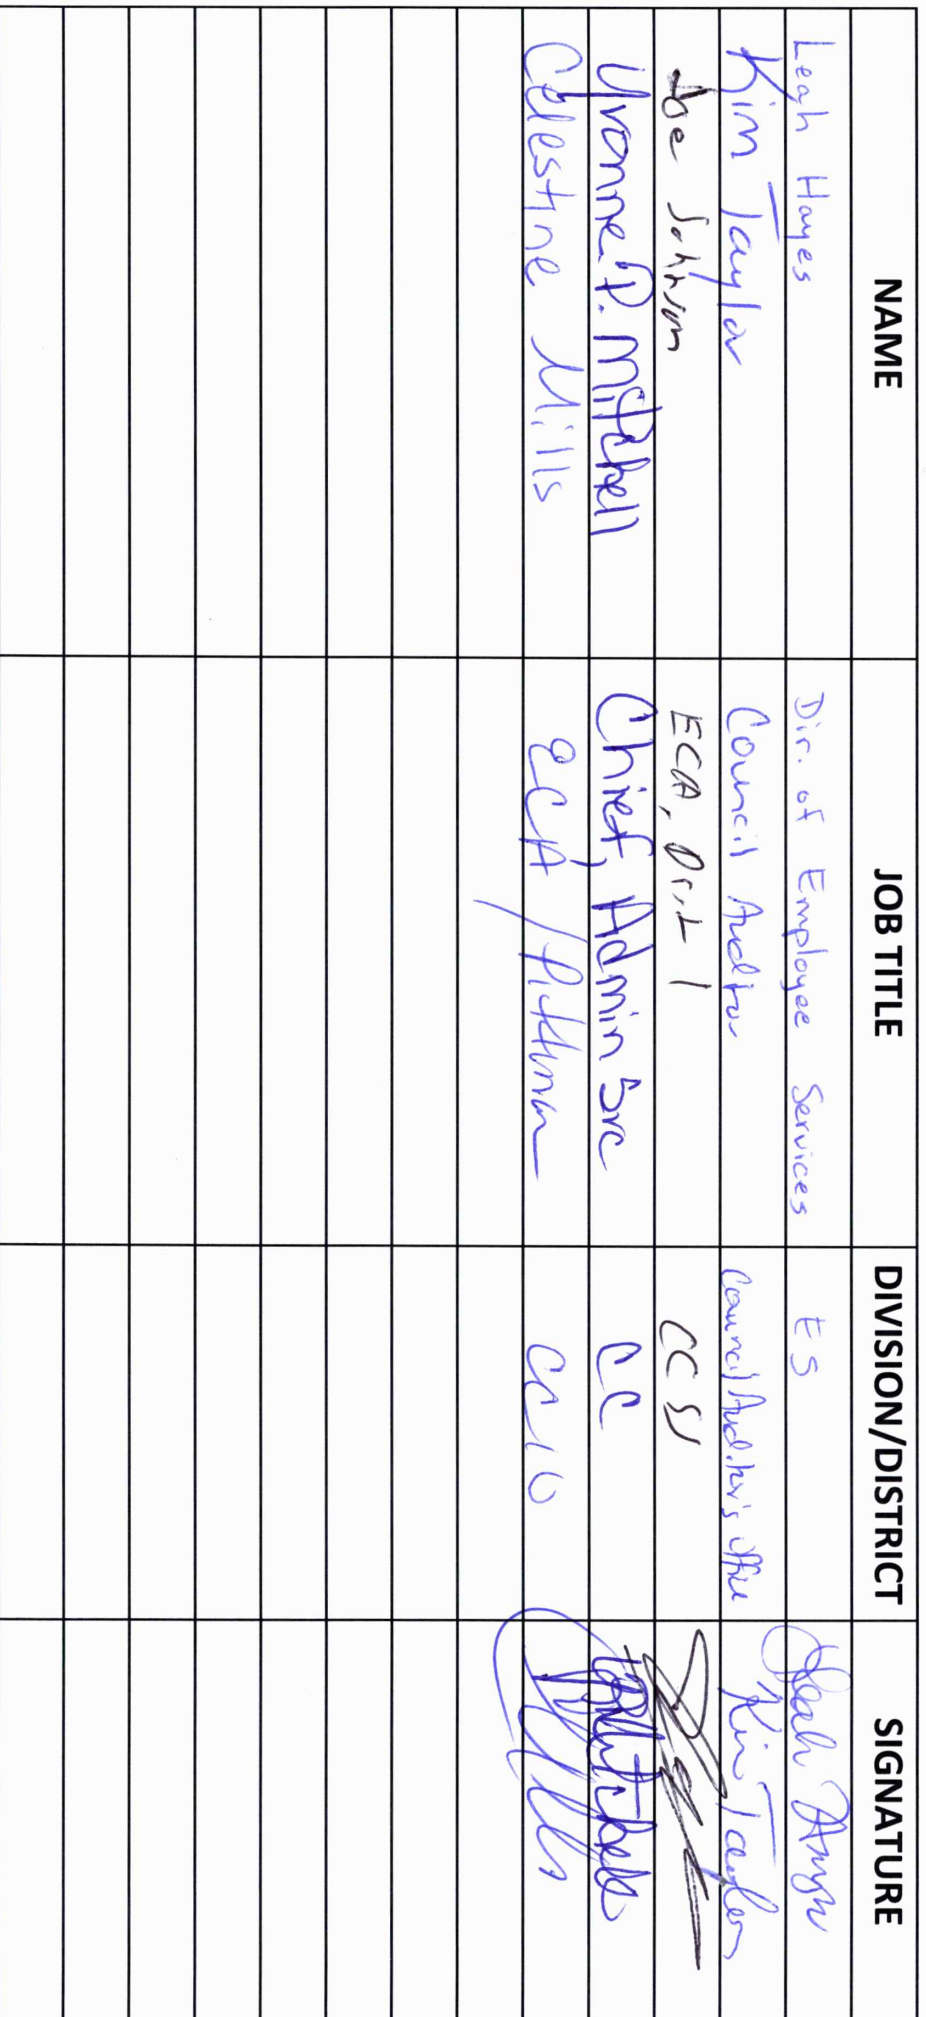 NAME JOB TITLE DIVISION/DISTRICT SIGNATURE
Leah Hayes Dir. of Employee Services ES
Kim Taylor Council Auditor Council Auditor's Office Kim Taylor
Joe Johnson ECA, Dist 1 CCS
Yvonne P. Mitchell Chief, Admin Svc CC
Celestine Mills ECA / Pittman CC10